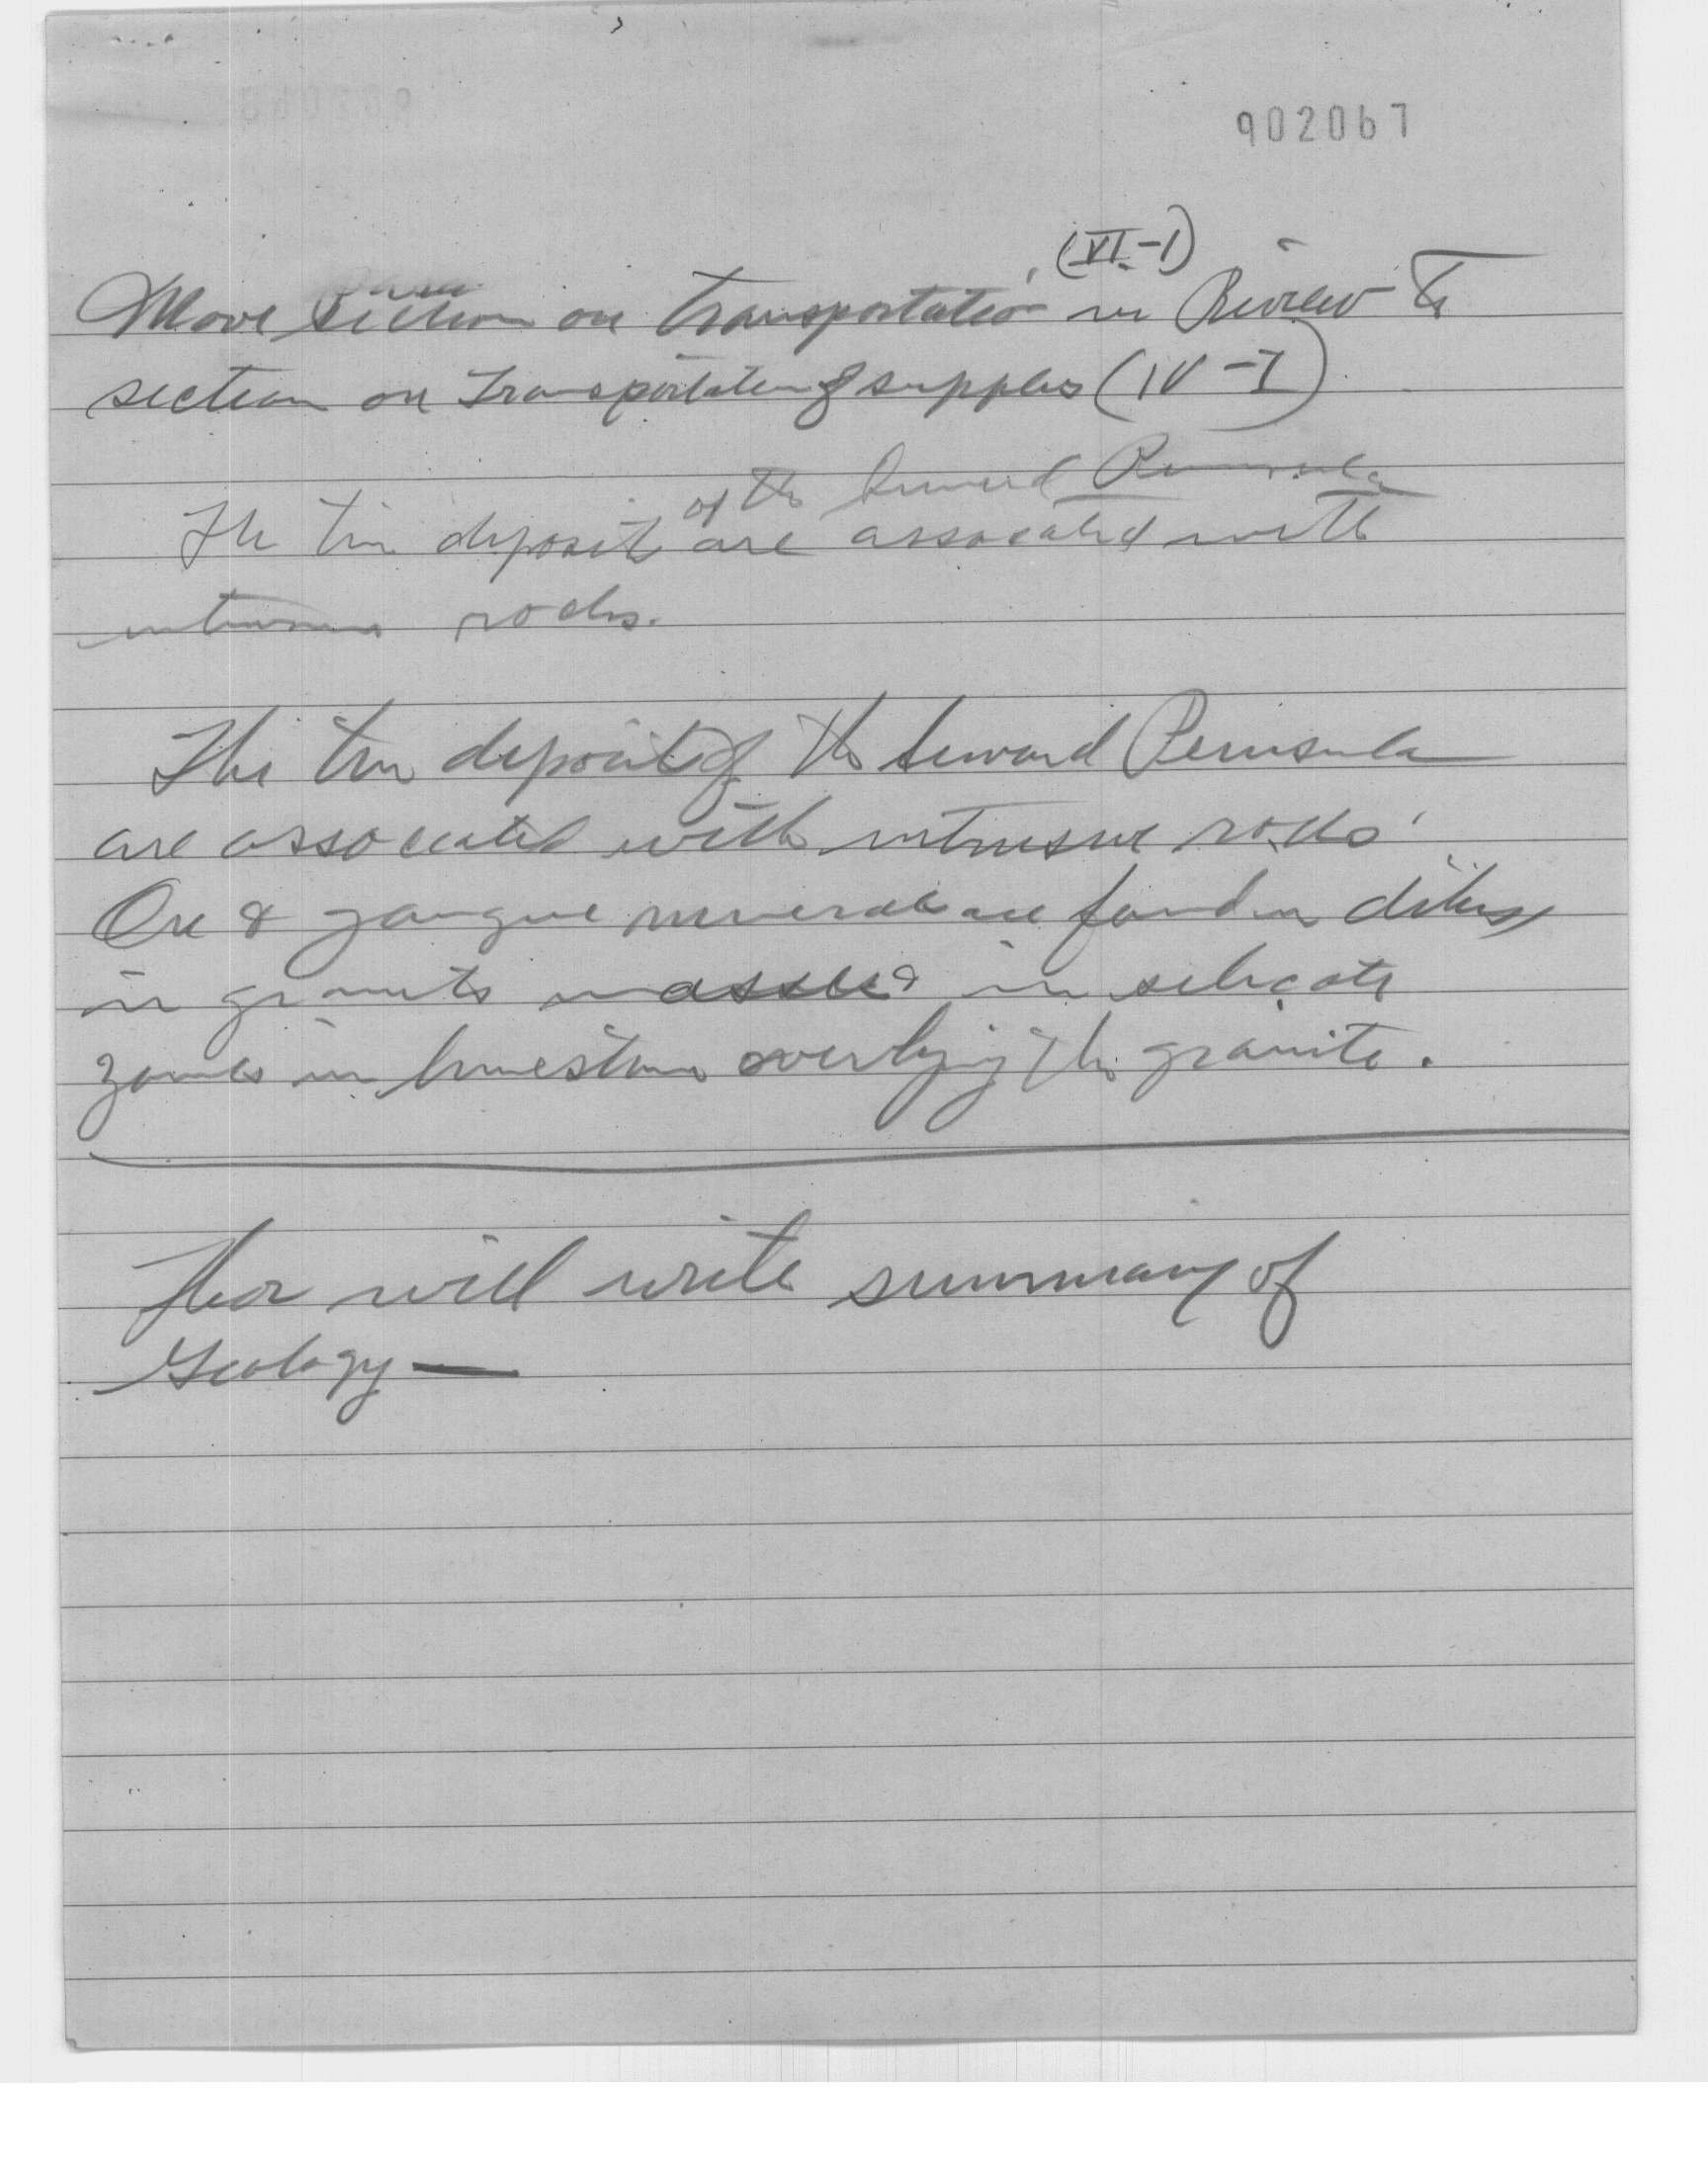 902067
(VI-1)
Move section on Transportation in Review to
section on Transportation of supplies (IV-I)
of the Seward Peninsula
The tin deposits are associated with
intrusive rocks.
The tin deposits of the Seward Peninsula
are associated with intrusive rocks
Ore & gangue minerals are found in dikes,
in granite masses & in silicate
zones in limestone overlying the granite.
will write summary of
Geology —